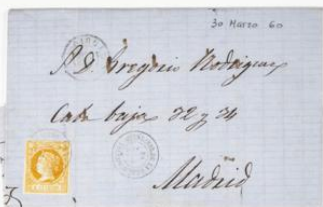 30 Marzo 60
A D. Gregorio Rodriguez
Cava baja 32 y 34
Madrid